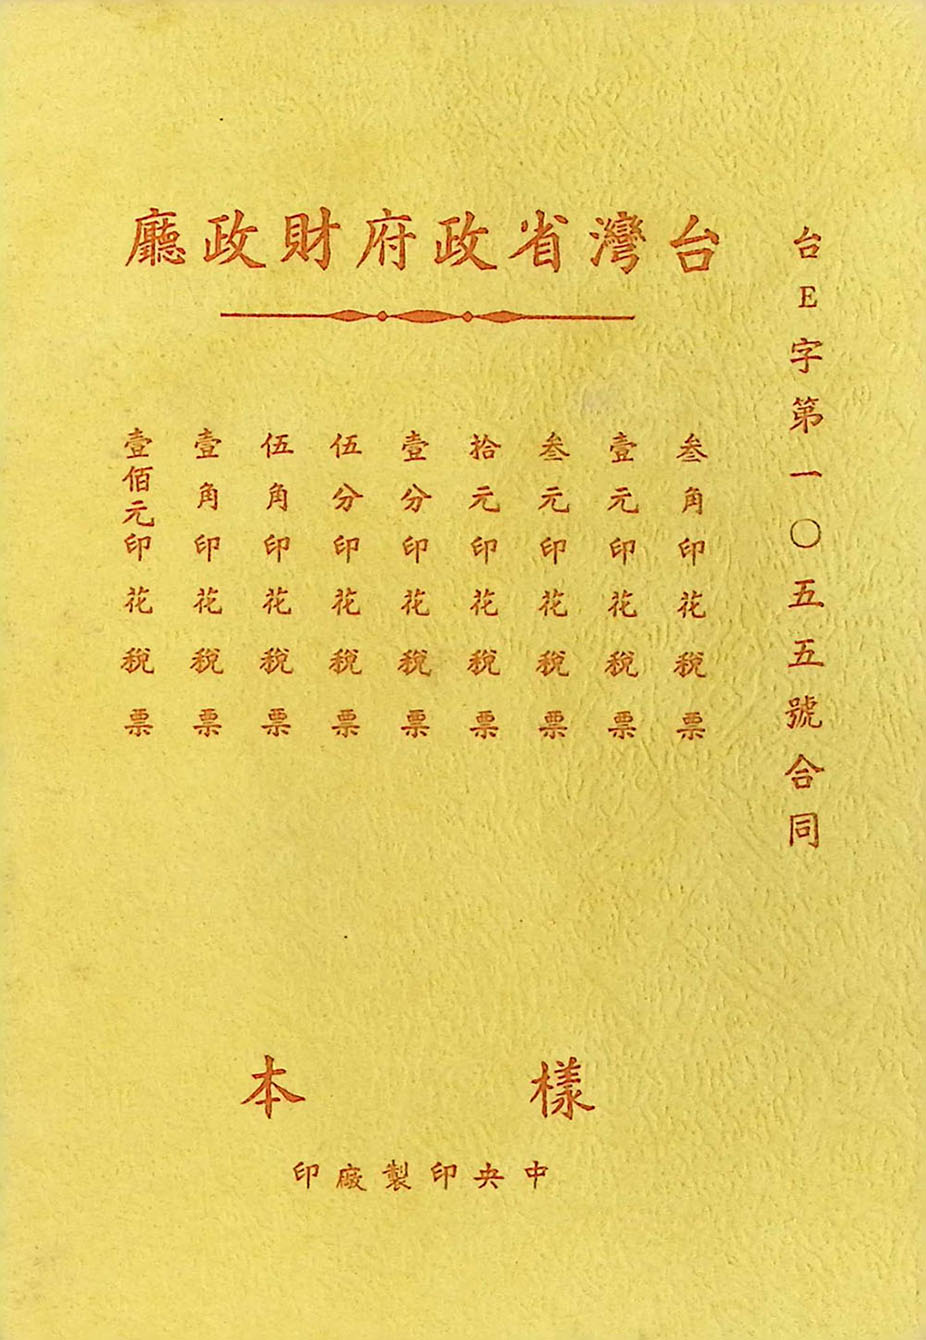 台E字第一〇五五號合同
台灣省政府財政廳
叁角印花稅票
壹元印花稅票
叁元印花稅票
拾元印花稅票
壹分印花稅票
伍分印花稅票
伍角印花稅票
壹角印花稅票
壹佰元印花稅票
樣本
中央印製廠印